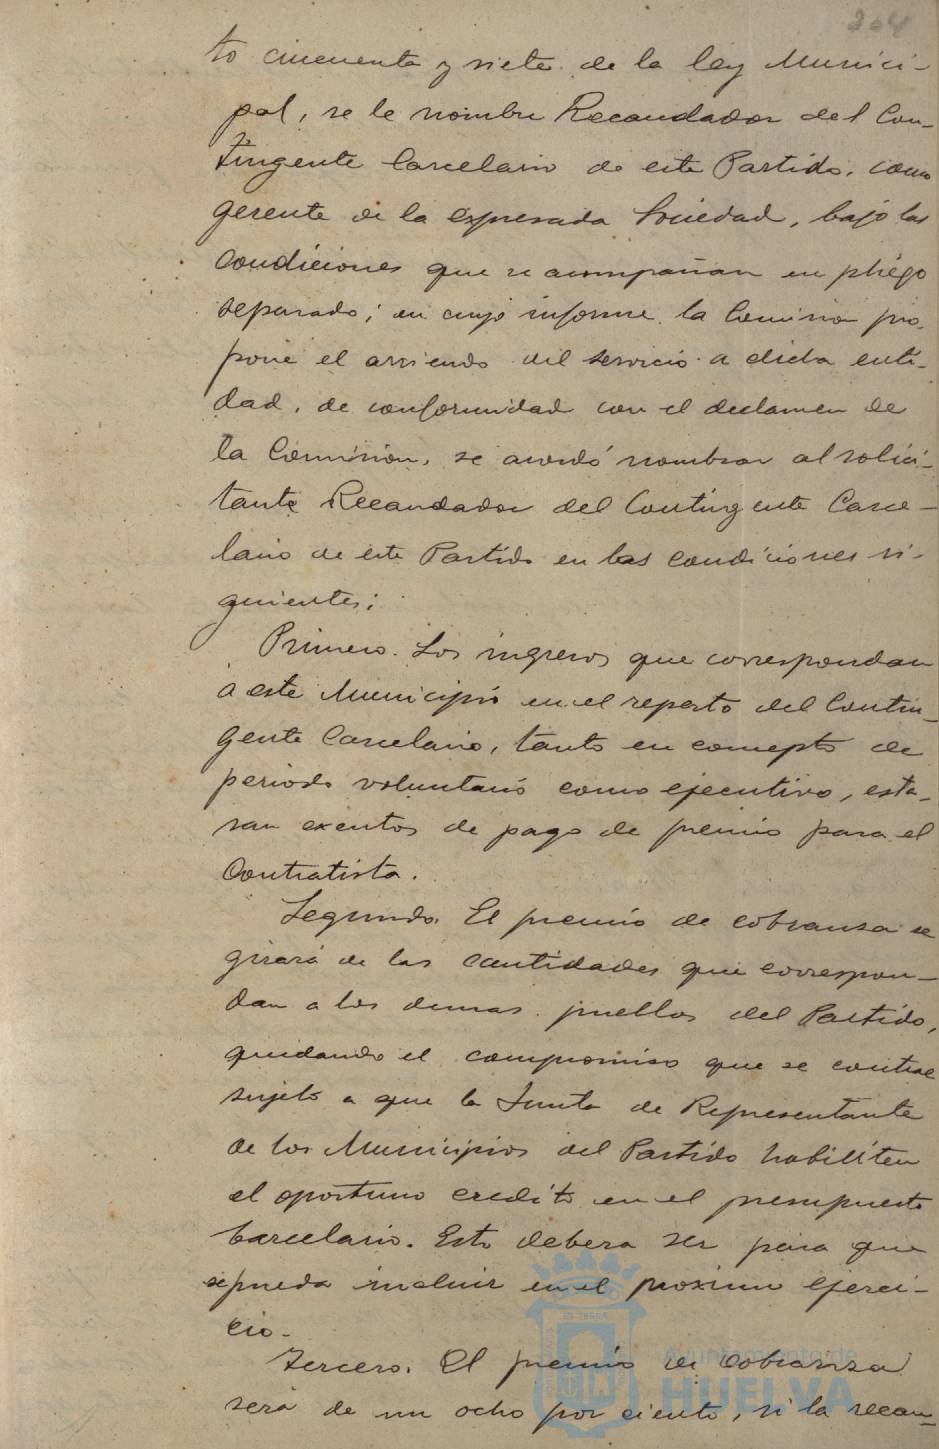 304
to cincuenta y siete de la ley Munici-
pal, se le nombre Recaudador del Con-
tingente Carcelario de este Partido, como
gerente de la expresada Sociedad, bajo las
condiciones que se acompañan en pliego
separado; en cuyo informe la Comision pro-
pone el arriendo del servicio a dicha enti-
dad, de conformidad con el dictamen de
la Comision, se acordó nombrar al solici-
tante Recaudador del Contingente Carce-
lario de este Partido en las condiciones si-
guientes:
Primero. Los ingresos que correspondan
a este Municipio en el reparto del Contin-
gente Carcelario, tanto en concepto de
periodo voluntario como ejecutivo, esta-
ran exentos de pago de premio para el
Contratista.
Segundo. El premio de cobransa se
girará de las cantidades que correspon-
dan a los demas pueblos del Partido,
quedando el compromiso que se contrae
sujeto a que la Junta de Representante
de los Municipios del Partido habiliten
el oportuno credito en el presupuesto
Carcelario. Esto debera ser para que
se pueda incluir en el proximo ejerci-
cio.
Tercero. El premio de Cobransa
será de un ocho por ciento, si la recau-
Ayuntamiento de
HUELVA